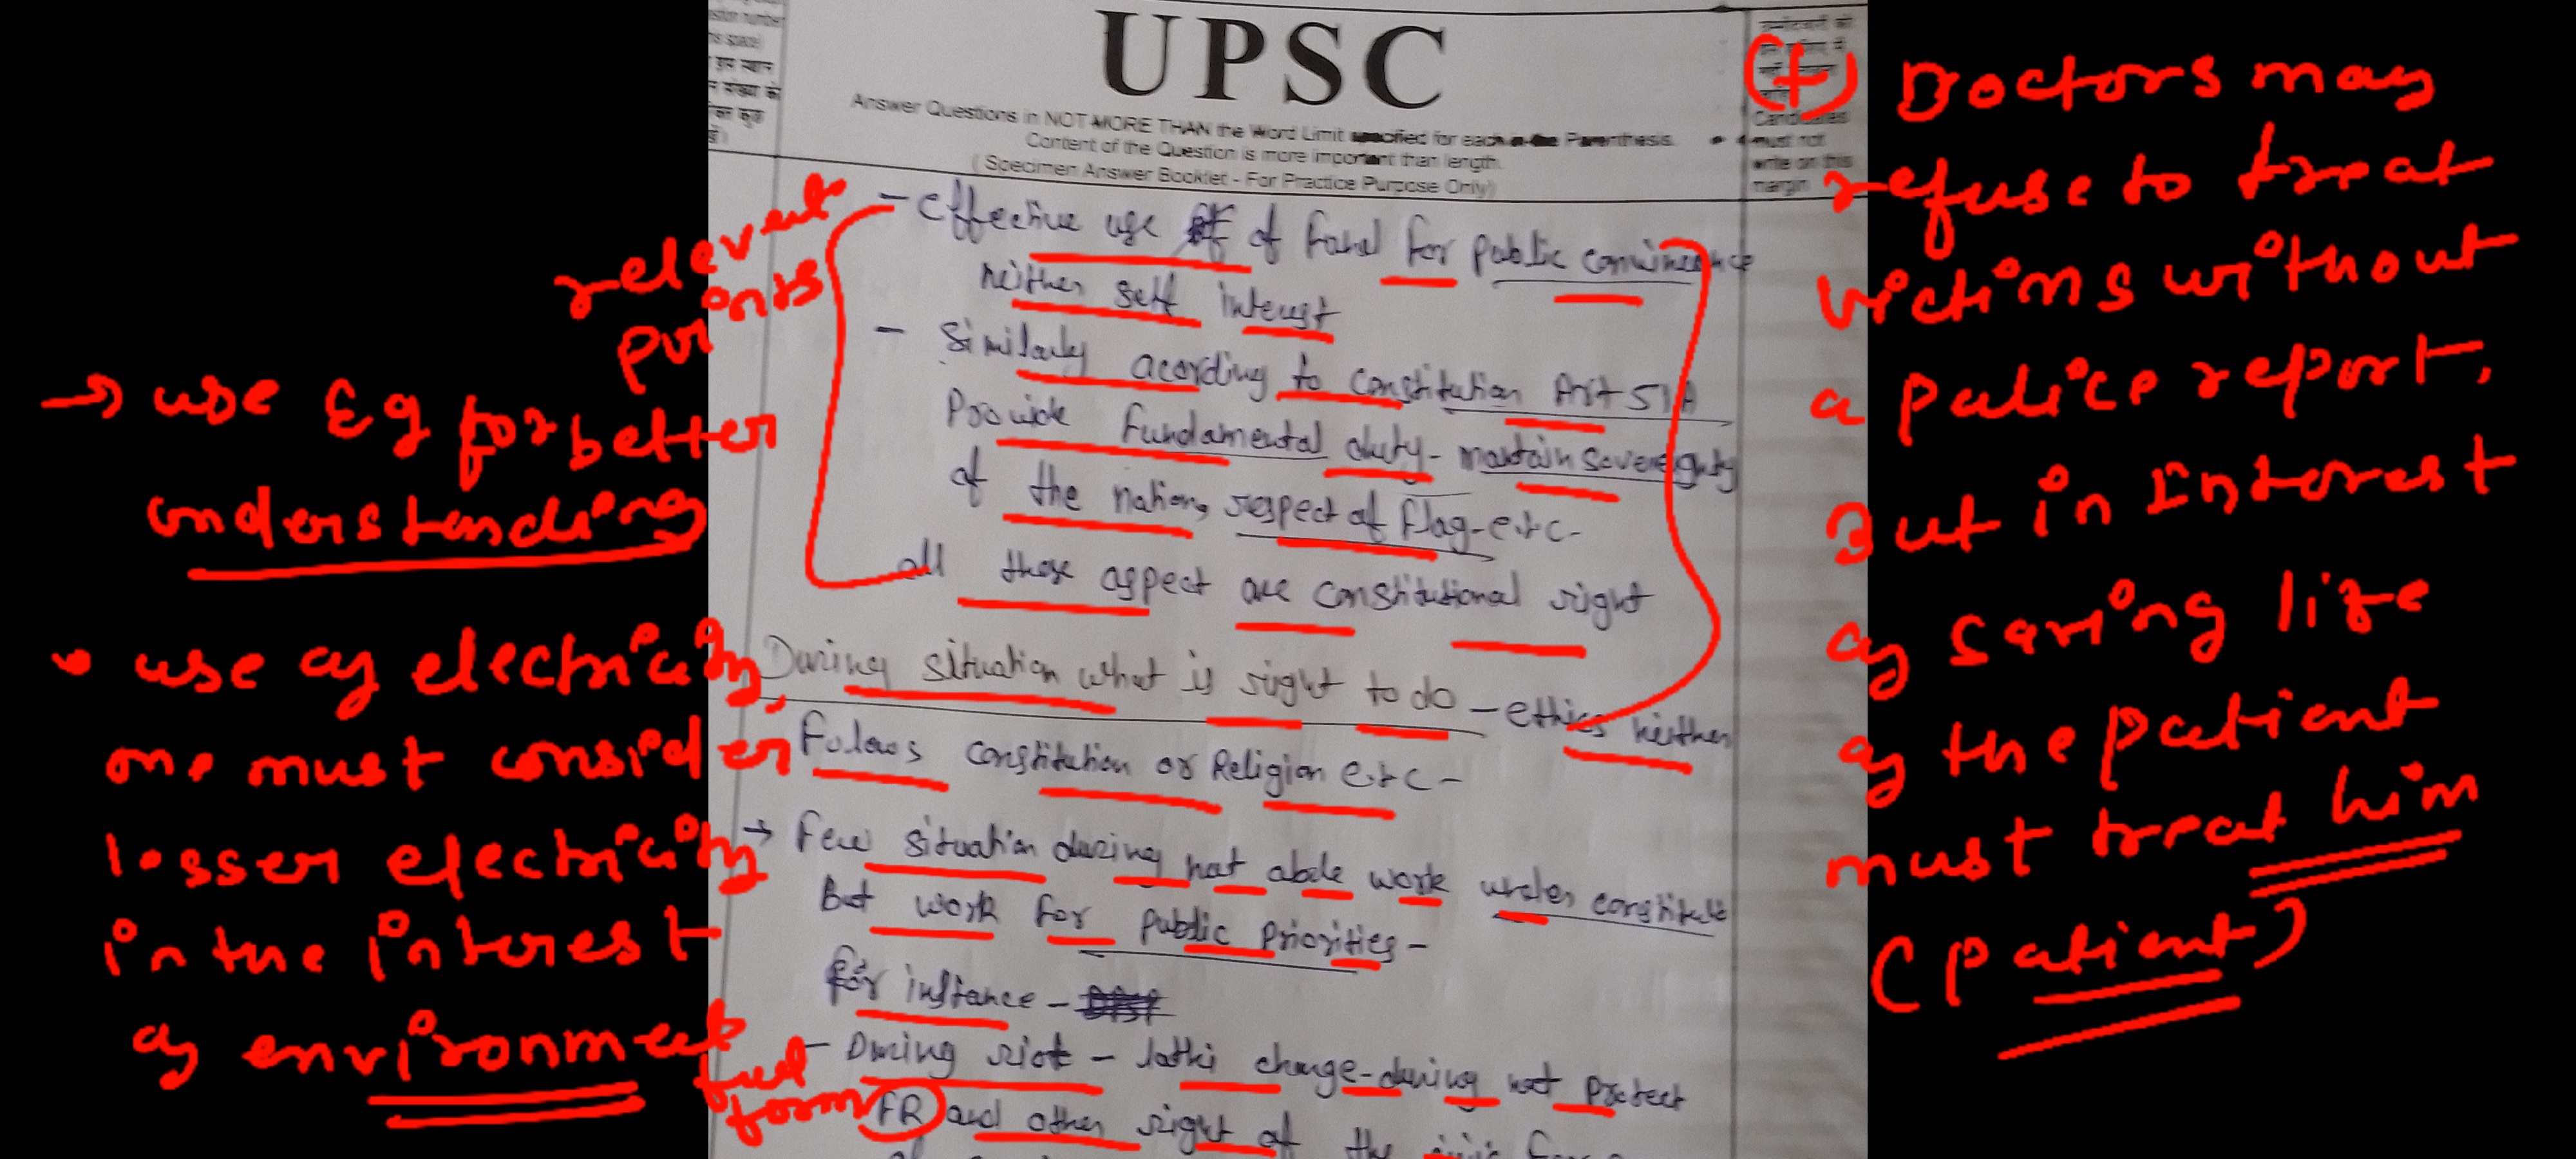 UPSC
Answer Questions in NOT MORE THAN the Word Limit specified for each in the Parenthesis.
Content of the Question is more important than length.
( Specimen Answer Booklet - For Practice Purpose Only)
must not
write on this
margin
- Effective use of for public
neither self interest
- Similarly acording to constitution Art 51A
Provide fundamental duty - maintain sovereignty
of the nation, respect of flag - etc -
all these aspect are constitutional right
During situation what is right to do - ethics neither
Follows constitution or Religion etc -
→ Few situation during not able work under
But work for public priorities -
for instance -
- During riot - lathi charge - during not protect
FR and other right of the
relevent
points
→ use Eg for better
understanding
• use of electricity,
one must consider
lesser electricity
in the interest
of environment
full
form
(+) Doctors may
refuse to treat
victims without
a police report,
But in Interest
of saving life
of the patient
must treat him
(patient)